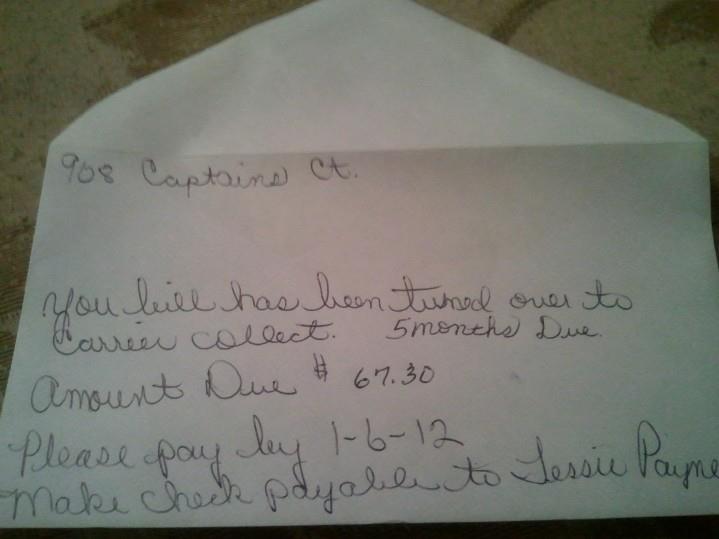 908 Captains Ct.
You bill has been tuned over to
Carrier collect. 5 months Due.
Amount Due $ 67.30
Please pay by 1-6-12
Make check payable to Jessie Payne